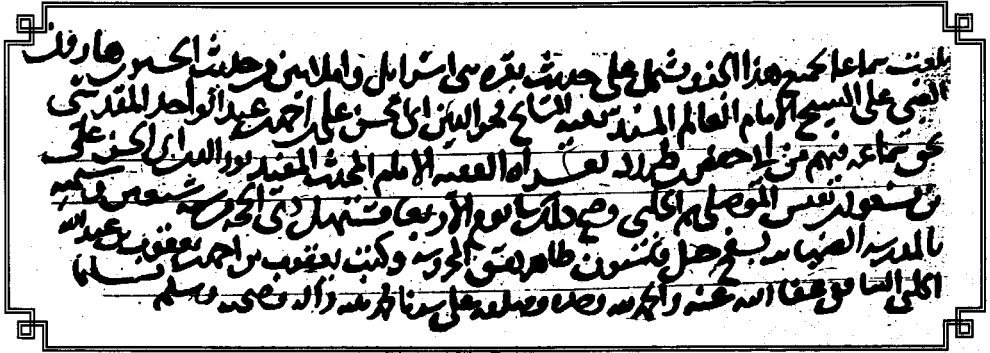 بلغت سماعا لجميع هذا الجزء ويشتمل على حديث بقرة بني اسرائيل واملاءين من حديث الحسن بن هارون
الضبي على الشيخ الامام العالم المسند بقية المشايخ فخر الدين ابي الحسن علي بن احمد بن عبد الواحد المقدسي
بحق سماعه فيهم من ابن طبرزد بقراءة الفقيه الامام المحدث المفيد نور الدين ابي الحسن علي
بن مسعود بن نفيس الموصلي ثم الحلبي وصح ذلك يوم الأربعاء مستهل ذي الحجة سنة
بالمدرسة الضيائية بسفح جبل قاسيون ظاهر دمشق المحروسة وكتب يعقوب بن احمد بن يعقوب بن عبد الله
الحلبي الشافعي عفا الله عنه والحمد لله وحده وصلوته على سيدنا محمد وآله وصحبه وسلم تسليما